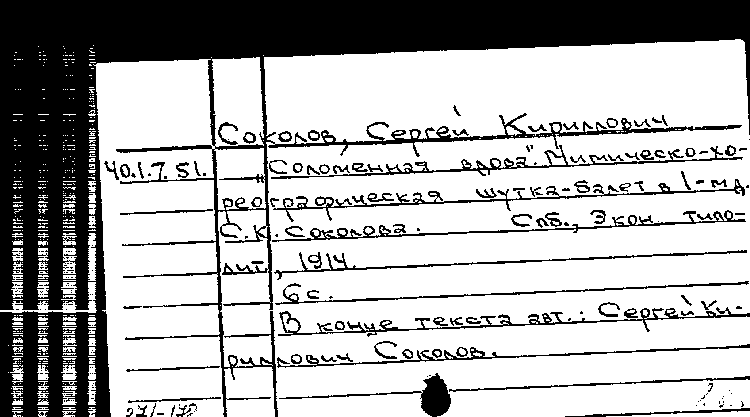 Соколов, Сергей Кириллович
40.1.7.51. „Соломенная вдова". Мимическо-хо-
реографическая шутка-балет в 1-м д.
С.К. Соколова. Спб., Экон. типо-
лит., 1914.
6 с.
В конце текста авт.: Сергей Ки-
риллович Соколов.